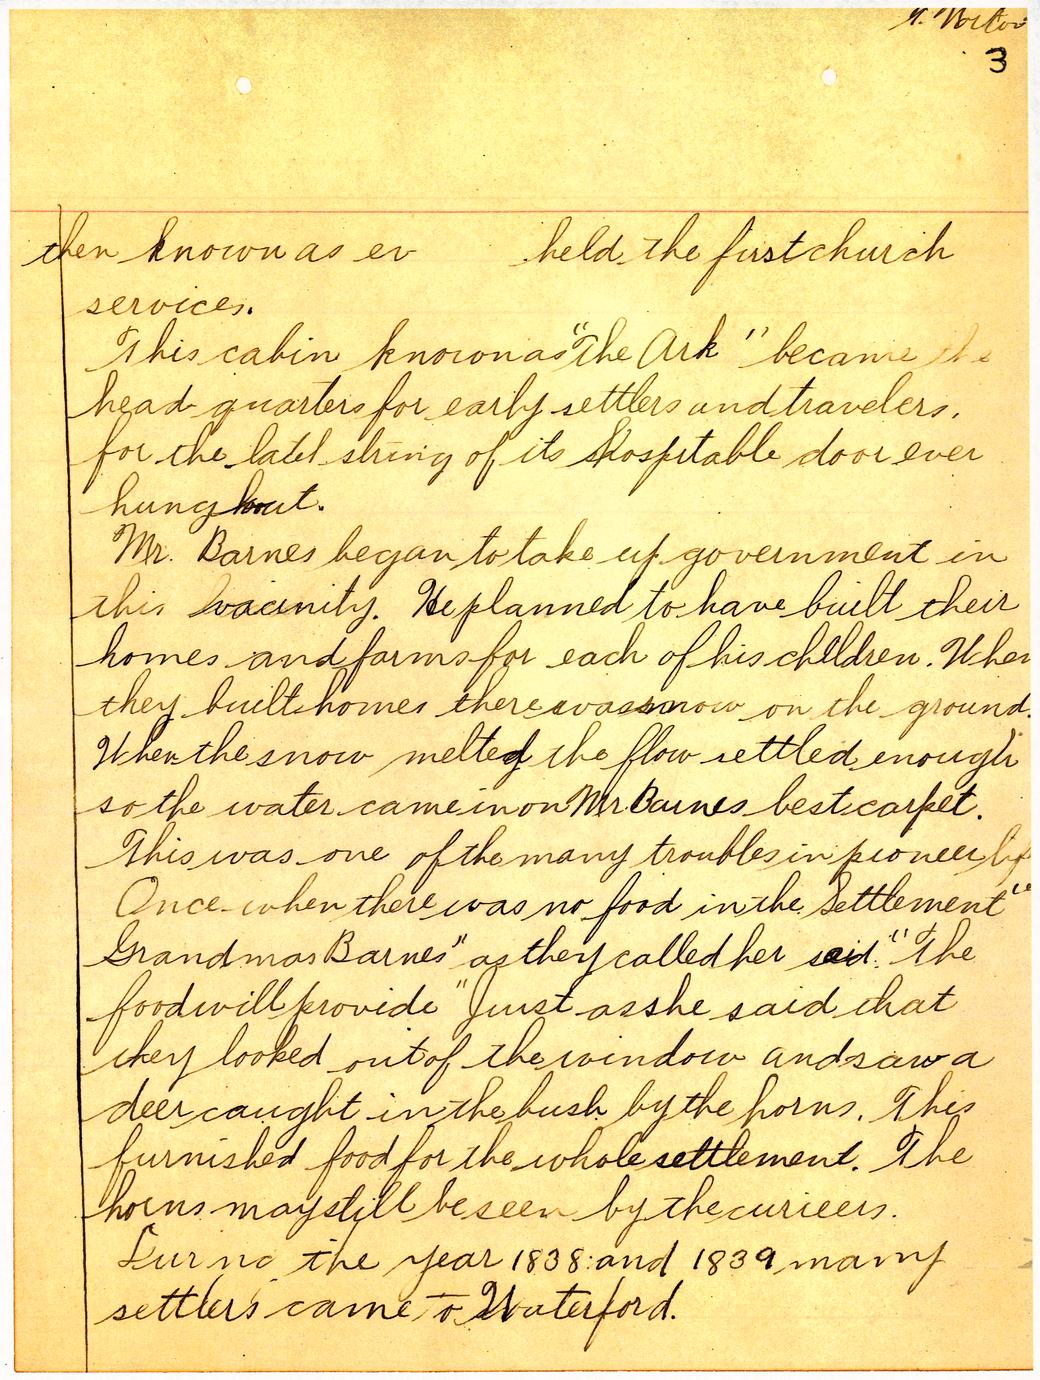 3
then known as ev held the first church
services.
This cabin known as "The Ark" became the
head quarters for early settlers and travelers.
for the latel string of its Hospitable door ever
hung out.
Mr. Barnes began to take up government in
this vacinity. He planned to have built their
homes and farms for each of his children. When
they built homes there was snow on the ground.
When the snow melted the flow settled enough
so the water came in on Mr. Barnes best carpet.
This was one of the many troubles in pioneer
Once when there was no food in the Settlement "
Grandmas Barnes" as they called her said. "The
food will provide" Just as she said that
they looked out of the window and saw a
deer caught in the bush by the horns. This
furnished food for the whole settlement. The
horns may still be seen by the curieers.
During the year 1838 and 1839 many
settlers came to Waterford.